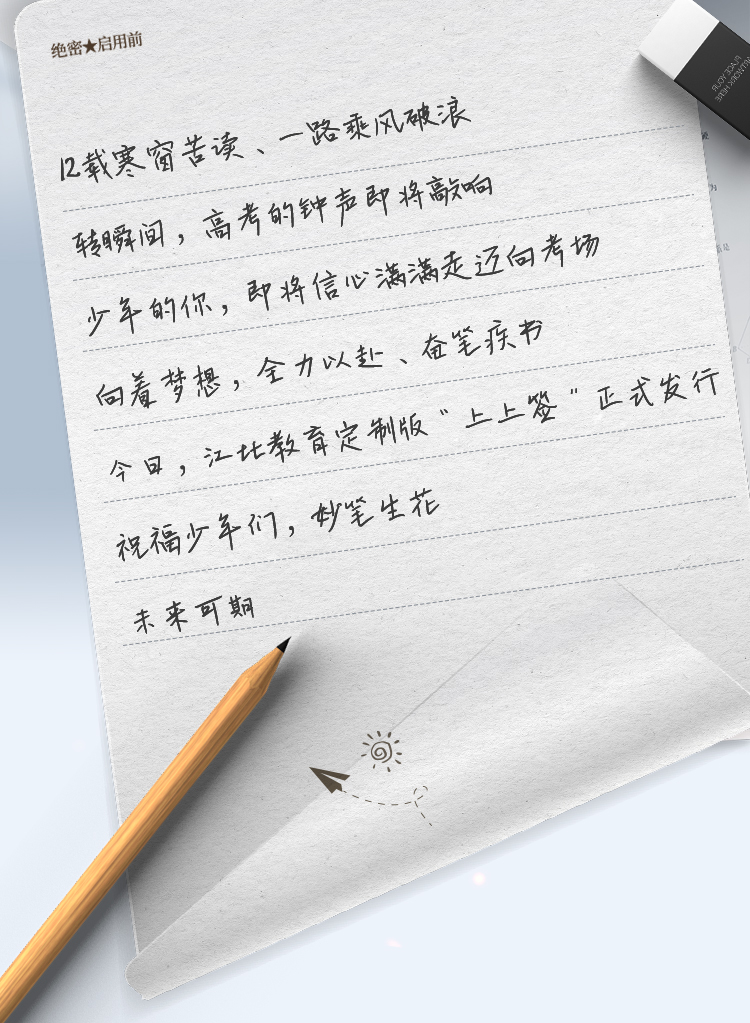 绝密★启用前
12载寒窗苦读、一路乘风破浪
转瞬间，高考的钟声即将敲响
少年的你，即将信心满满走迈向考场
向着梦想，全力以赴、奋笔疾书
今日，江北教育定制版“上上签”正式发行
祝福少年们，妙笔生花
未来可期
PLACE YOUR
ARTWORK HERE